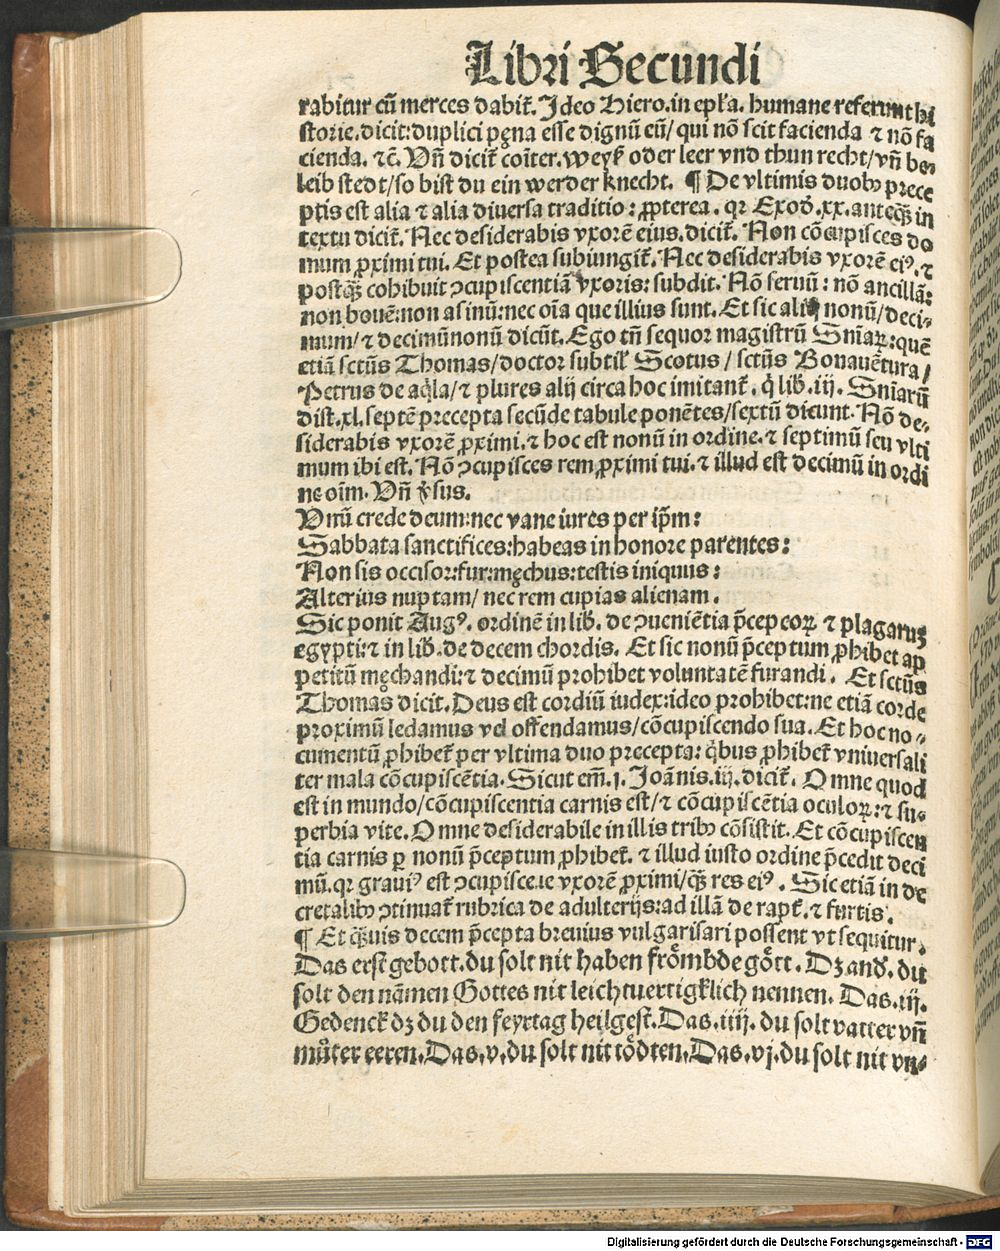 Libri Secundi
rabitur cū merces dabit᷑. Ideo Hiero. in epl'a. humane referunt hi
storie. dicit: duplici pęna esse dignū eū / qui nō scit facienda ⁊ nō fa
cienda. ⁊c̄. Vn̄ dicit᷑ coīter. weyß oder leer vnd thun recht / vn̄ be⸗
leib stedt / so bist du ein werder knecht. ¶ De vltimis duobꝫ prece
ptis est alia ⁊ alia diuersa traditio: ꝓpterea. qꝛ Exod̄. xx. anteqꝫ in
textu dicit᷑. Nec desiderabis vxorē eius. dicit᷑. Non cōcupisces do
mum ꝓximi tui. Et postea subiungit᷑. Nec desiderabis vxorē eiꝰ. ⁊
postqꝫ cohibuit ꝯcupiscentiā vxoris: subdit. Nō seruū: nō ancillā:
non bouē: non asinū: nec oīa que illius sunt. Et sic alij nonū / deci⸗
mum / ⁊ decimū nonū dicūt. Ego tn̄ sequor magistrū Sn̄iaꝝ: quē
etiā sctūs Thomas / doctor subtil' Scotus / sctūs Bonauētura /
Petrus de aq̄la / ⁊ plures alij circa hoc imitant᷑. q̄ lib̄. iij. Sn̄iarū
dist. xl. septē precepta secūde tabule ponētes / sextū dicunt. Nō de⸗
siderabis vxorē ꝓximi. ⁊ hoc est nonū in ordine. ⁊ septimū seu vlti
mum ibi est. Nō ꝯcupisces rem ꝓximi tui. ⁊ illud est decimū in ordi
ne oīm. Vn̄ v̄sus.
Vnū crede deum: nec vane iures per ip̄m:
Sabbata sanctifices: habeas in honore parentes:
Non sis occisor: fur: męchus: testis iniquus:
Alterius nuptam / nec rem cupias alienam.
Sic ponit Augꝰ. ordinē in lib̄. de ꝯueniētia p̄ceptoꝝ ⁊ plagarum
egypti: ⁊ in lib̄. de decem chordis. Et sic nonū p̄ceptum ꝓhibet ap
petitū męchandi: ⁊ decimū prohibet voluntatē furandi. Et sctūs
Thomas dicit. Deus est cordiū iudex: ideo prohibet: ne etiā corde
proximū ledamus vel offendamus / cōcupiscendo sua. Et hoc no⸗
cumentū ꝓhibet᷑ per vltima duo precepta: q̄bus ꝓhibet᷑ vniuersali
ter mala cōcupiscētia. Sicut em̄. j. Joānis. ij. dicit᷑. Omne quod
est in mundo / cōcupiscentia carnis est / ⁊ cōcupiscētia oculoꝝ: ⁊ su⸗
perbia vite. Omne desiderabile in illis tribꝫ cōsistit. Et cōcupiscen
tia carnis ꝑ nonū p̄ceptum ꝓhibet᷑. ⁊ illud iusto ordine p̄cedit deci
mū. qꝛ grauiꝰ est ꝯcupiscere vxorē ꝓximi / qꝫ res eiꝰ. Sic etiā in de
cretalibꝫ ꝯtinuat᷑ rubrica de adulterijs: ad illā de rapt᷑. ⁊ furtis.
¶ Et qꝫuis decem p̄cepta breuius vulgarisari possent vt sequitur.
Das erst gebott. du solt nit haben froͤmbde goͤtt. Dz and. du
solt den nāmen Gottes nit leichtuertigklich nennen. Das. iij.
Gedenck dz du den feyrtag heilgest. Das. iiij. du solt vatter vn̄
můter eeren. Das. v. du solt nit toͤdten. Das. vj. du solt nit vn⸗
Digitalisierung gefördert durch die Deutsche Forschungsgemeinschaft - DFG